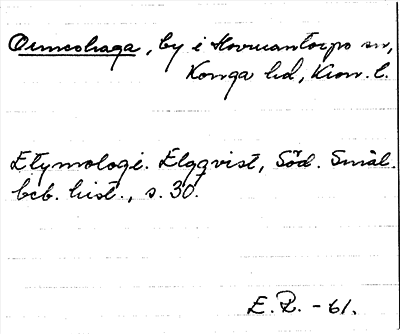 Ormeshaga, by i Hovmantorps sn,
Konga hd, Kron. l.
Etymologi. Elgqvist, Söd. Smål.
beb. hist., s. 30.
E.R. - 61.